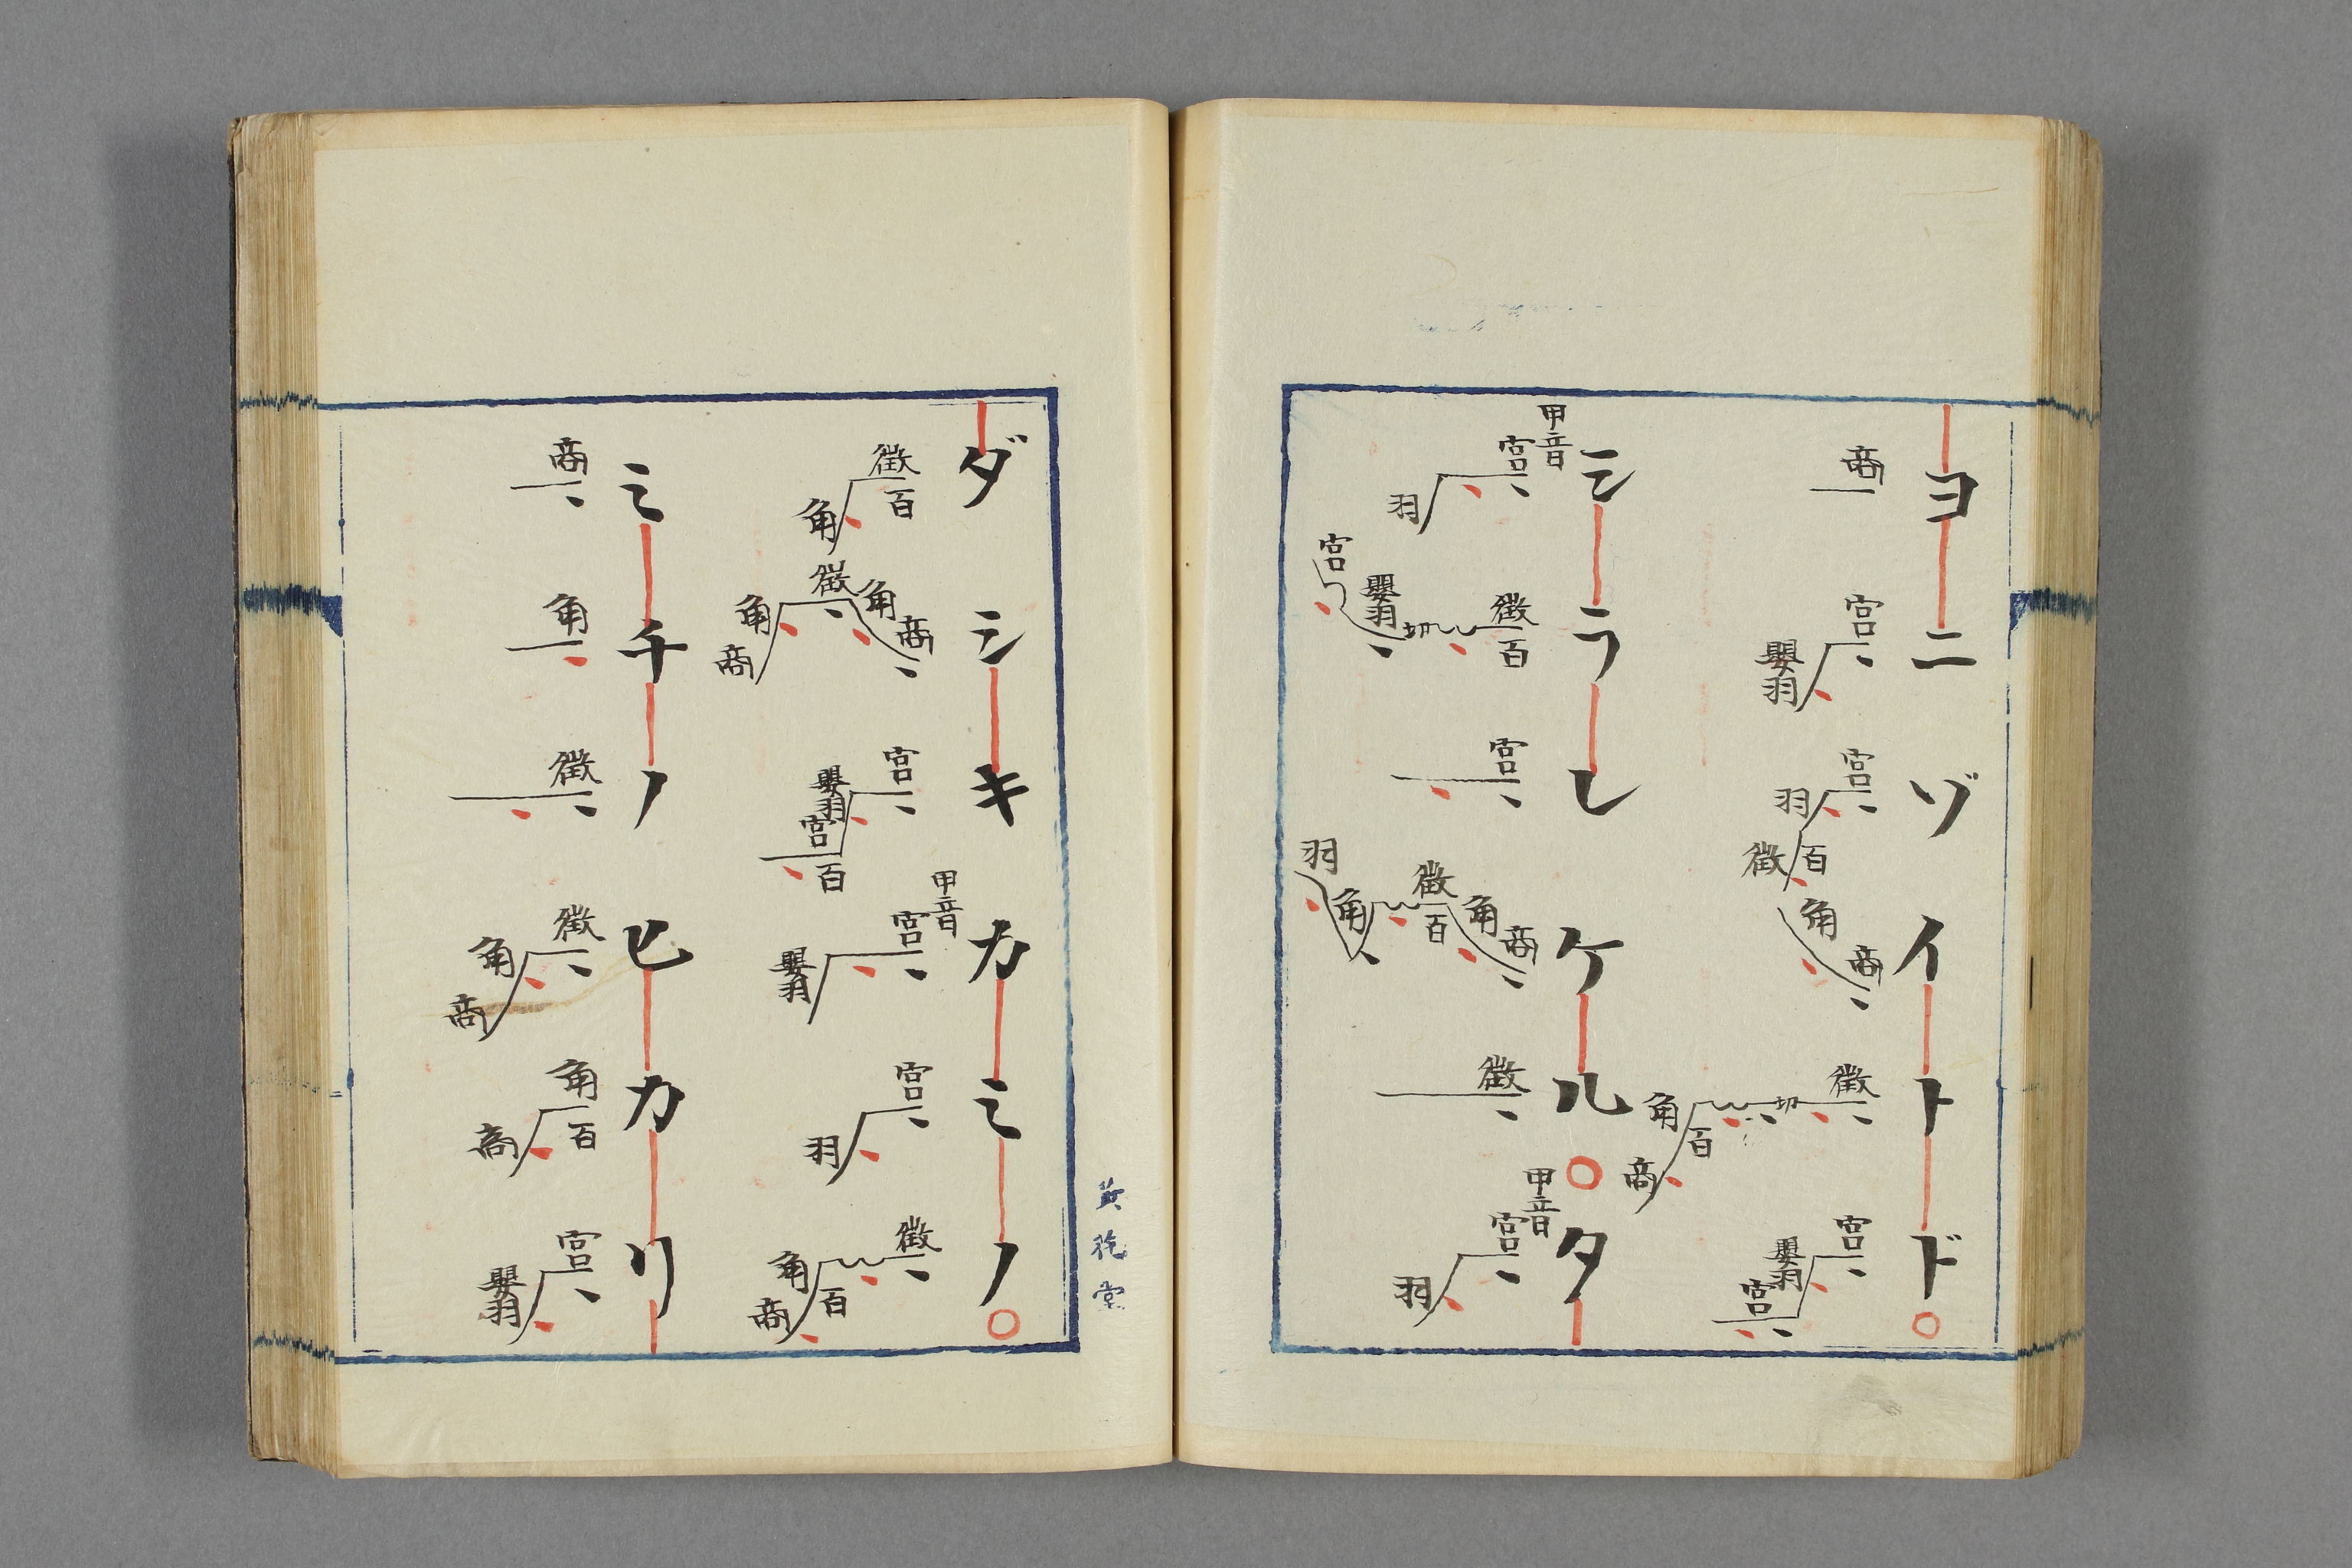 ヨニゾイトド
商
宮
嬰羽
宮
羽
徴百
角
商
徴
切
角百
商
宮
嬰羽
宮
シラレケルタ
甲音
宮
羽
徴百
切
嬰羽
宮
宮
商
角
徴百
角
羽
徴
甲音
宮
羽
ダシキカミノ
徴百
角
商
角
徴
角
商
宮
嬰羽
宮百
甲音
宮
嬰羽
宮
羽
徴
角百
商
ミチノヒカリ
商
角
徴
徴
角
商
角百
商
宮
嬰羽